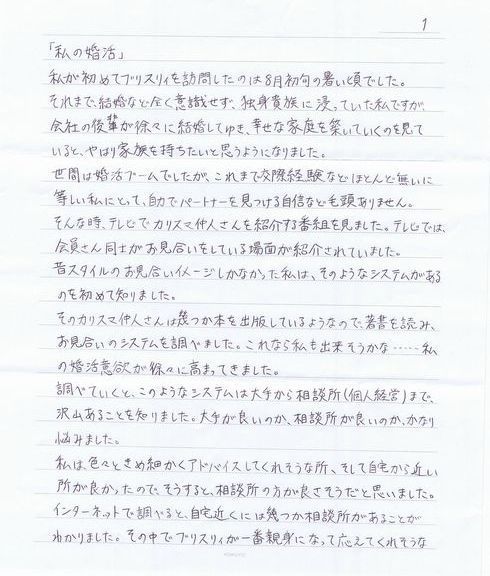 1
「私の婚活」
私が初めてブリスリィを訪問したのは8月初旬の暑い頃でした。
それまで、結婚など全く意識せず、独身貴族に浸っていた私ですが、
会社の後輩が徐々に結婚してゆき、幸せな家庭を築いていくのを見て
いると、やはり家族を持ちたいと思うようになりました。
世間は婚活ブームでしたが、これまで交際経験などほとんど無いに
等しい私にとって、自力でパートナーを見つける自信など毛頭ありません。
そんな時、テレビでカリスマ仲人さんを紹介する番組を見ました。テレビでは、
会員さん同士がお見合いをしている場面が紹介されていました。
昔スタイルのお見合いイメージしかなかった私は、そのようなシステムがある
のを初めて知りました。
そのカリスマ仲人さんは幾つか本を出版しているようなので、著書を読み、
お見合いのシステムを調べました。これなら私も出来そうかな……私
の婚活意欲が徐々に高まってきました。
調べていくと、このようなシステムは大手から相談所(個人経営)まで、
沢山あることを知りました。大手が良いのか、相談所が良いのか、かなり
悩みました。
私は、色々ときめ細かくアドバイスしてくれそうな所、そして自宅から近い
所が良かったので、そうすると、相談所の方が良さそうだと思いました。
インターネットで調べると、自宅近くには幾つか相談所があることが
わかりました。その中でブリスリィが一番親身になって応えてくれそうな